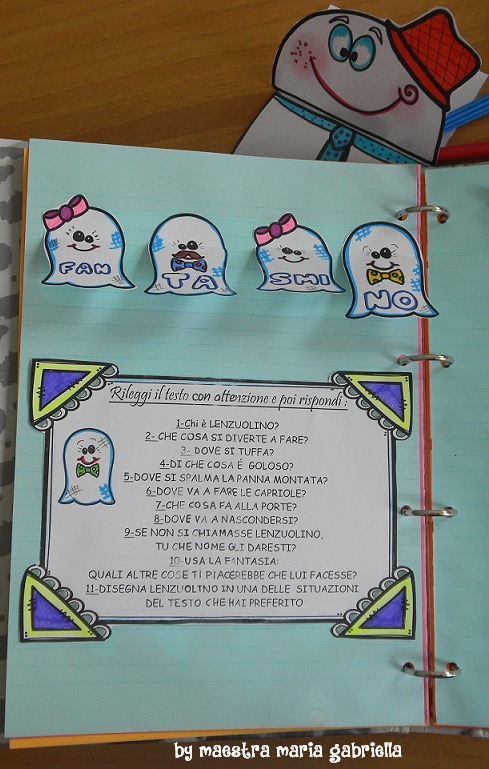 FAN TA SMI NO
Rileggi il testo con attenzione e poi rispondi :
1-Chi è LENZUOLINO?
2- CHE COSA SI DIVERTE A FARE?
3- DOVE SI TUFFA?
4-DI CHE COSA É GOLOSO?
5-DOVE SI SPALMA LA PANNA MONTATA?
6-DOVE VA A FARE LE CAPRIOLE?
7-CHE COSA FA ALLA PORTE?
8-DOVE VA A NASCONDERSI?
9-SE NON SI CHIAMASSE LENZUOLINO,
TU CHE NOME GLI DARESTI?
10-USA LA FANTASIA:
QUALI ALTRE COSE TI PIACEREBBE CHE LUI FACESSE?
11-DISEGNA LENZUOLINO IN UNA DELLE SITUAZIONI
DEL TESTO CHE HAI PREFERITO
by maestra maria gabriella